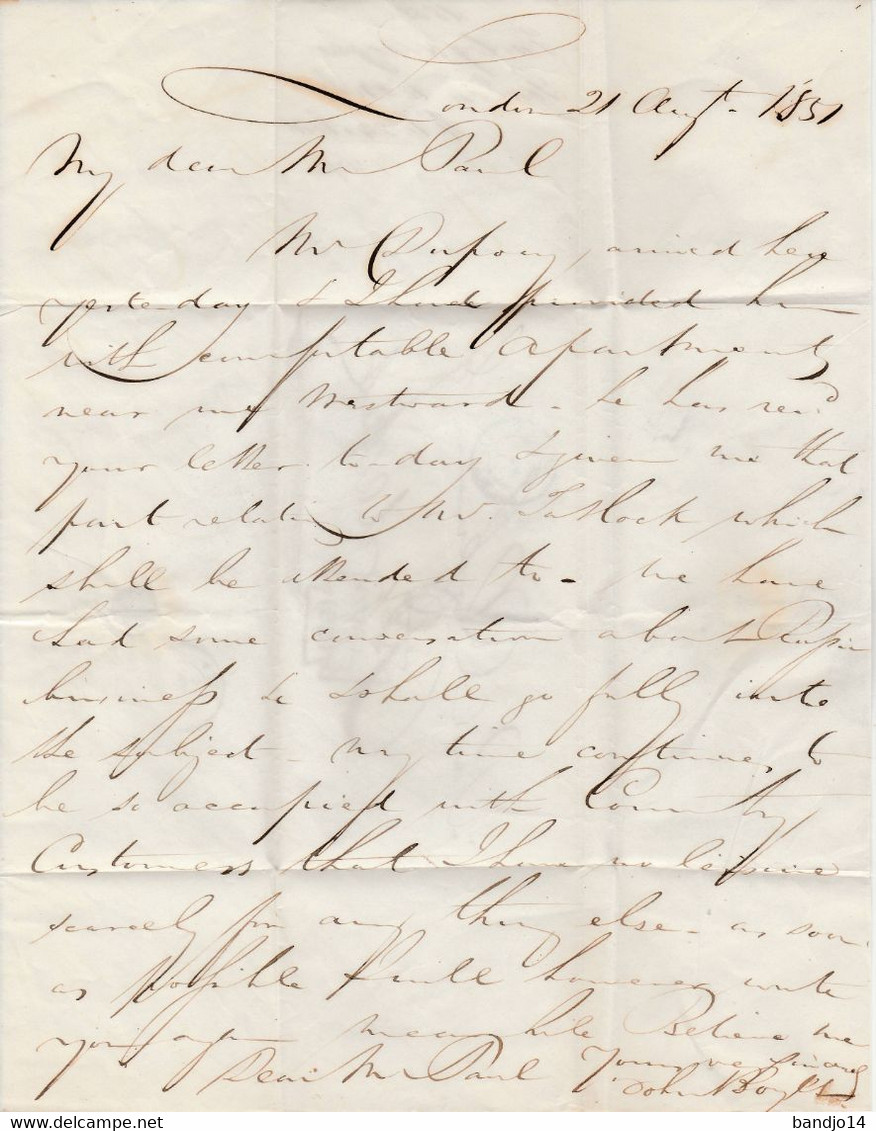 London 21 Augt. 1851
My dear Mr Paul
Mr Dupouy, arrived here
yesterday & I have provided him
with comfortable apartments
near me Westward - he has recd
your letter to-day & given me that
part relating to Mr. Tatlock which
shall be attended to - We have
had some conversation about Russia
business & I shall go fully into
the subject - my time continues to
be so occupied with Country
Customers that I have no leisure
scarcely for any thing else - as soon
as possible I will however write
you again meanwhile Believe me
Dear Mr Paul Yours very sincerely
John
www.delcampe.net
bandjo14